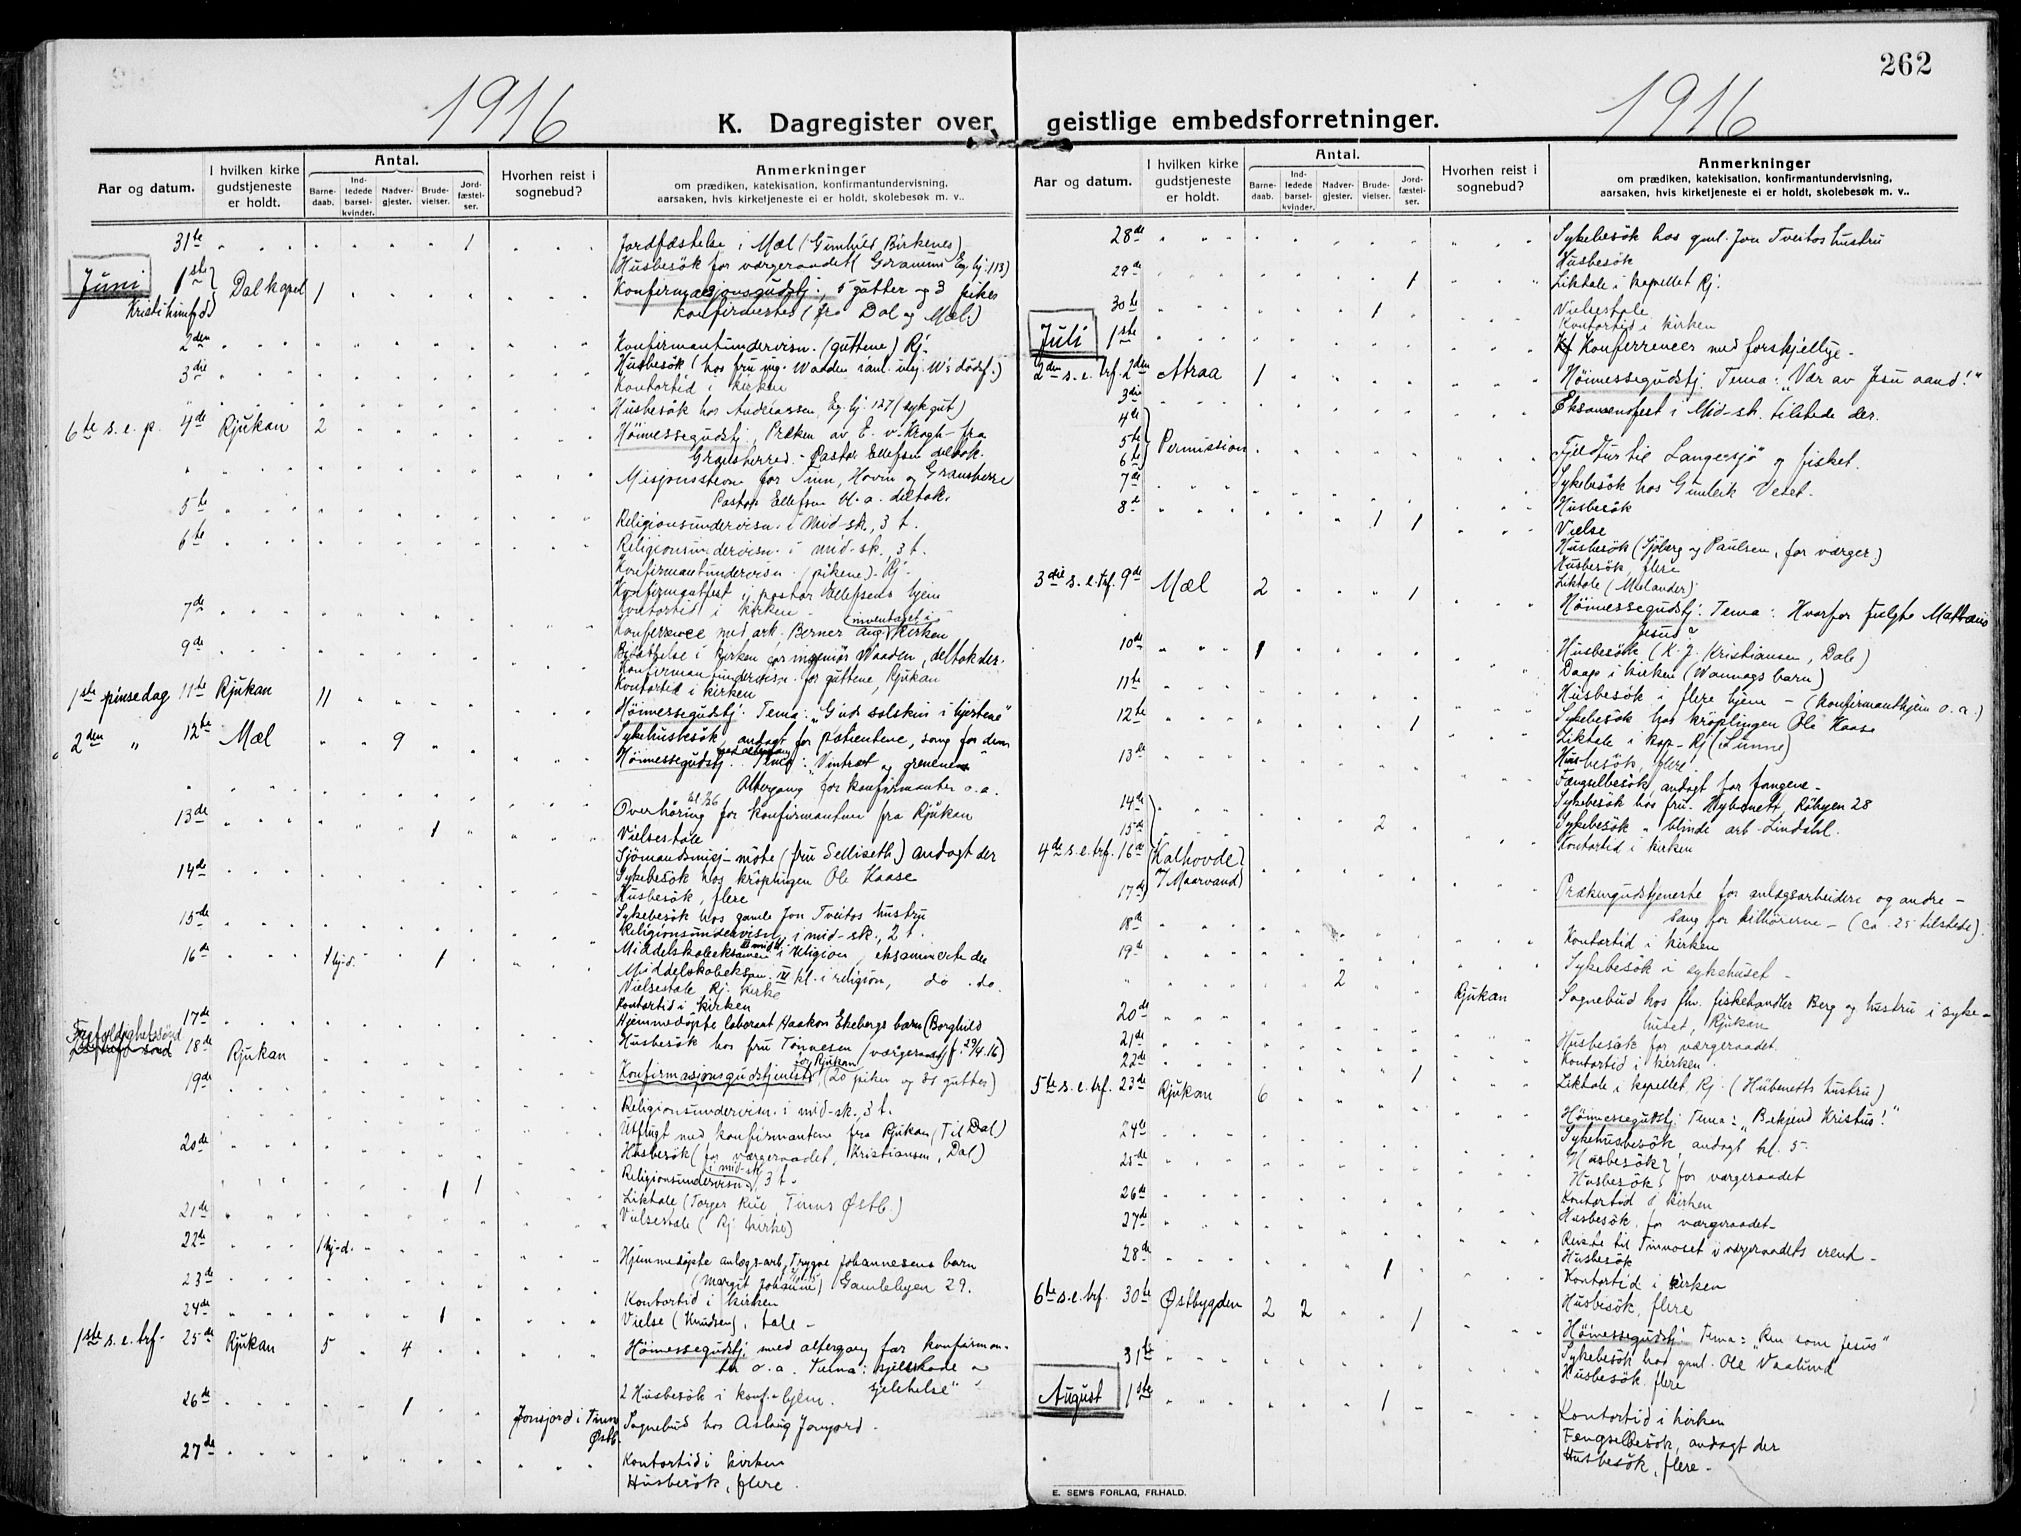 262
1916
1916
K. Dagregister over geistlige embedsforretninger.
Aar og datum.
I hvilken kirke gudstjeneste er holdt.
Antal.
Barnedaab.
Indledede barselkvinder.
Nadvergjester.
Brudevielser.
Jordfæstelser.
Hvorhen reist i sognebud?
Anmerkninger
om prædiken, katekisation, konfirmantundervisning,
aarsaken, hvis kirketjeneste ei er holdt, skolebesøk m. v..
31te 1 Jordfæstelse i Mæl (Gunhild Birkenes)
Husbesök for værgeraadet
Juni 1ste Dal kapel 1 Konfirmasjonsgudstj., 5 gutter og 3 piker
Kristi himfd. konfirmertes (fra Dal og Mæl)
2den Konfirmantundervisn. (guttene) Rj.
3die Husbesök (hos fru ing. Waaden
Kontortid i kirken
Husbesök hos Andreassen, Eg. hj. 127 (syk gut)
6te s. e. p. 4de Rjukan 2 Höimessegudstj. Præken av E. v. Krogh fra
Gransherred. - Pastor Ellefsen deltok.
Misjonsstevne for Tinn, Hovin og Gransherre
Pastor Ellefsen bl. a. deltok.
5te Religionsundervisn. i Mid-sk., 3 t.
6te Religionsundervisn. i mid-sk. 3 t.
Konfirmantundervisn. (pikene) - Rj.
Konfirmantfest i pastor Ellefsens hjem
7de Kontortid i kirken
Konferance med ark. Berner ang. inventaret i kirken
9de Bisættelse i kirken for ingeniör Waaden, deltok der.
Konfirmantundervisn. for guttene, Rjukan
Kontortid i kirken
1ste pinsedag 11te Rjukan 11 Höimessegudstj. Tema: „Guds solskin i hjertene"
Sykehusbesök, andagt for patientene, sang for dem
2den " 12te Mæl 9 Höimessegudstj. Tema: „Vintræt og grenene"
Altergang for konfirmanter o. a.
Overhöring for konfirmanter fra Rjukan
13de 1 Vielsestale
Sjömandsmisj-möte (fru Selliseth) andagt der
14de Sykebesök hos kröplingen Ole Kaase
Husbesök, flere
15de Sykebesök hos gamle Jon Tveitos hustru
Religionsundervisn. i mid-sk., 2 t.
16de 1 hj-d. 1 Middelskoleeksamen i religion, eksaminerte der
Middelskoleeksam. IV kl. i religion, do. do.
Vielsestale Rj. kirke
Kontortid i kirken
17de Hjemmedöpte laborant Haakon Ekebergs barn (Borghild
Husbesök hos fru Tönnesen (værgeraad)
18de Rjukan Konfirmasjonsgudstjeneste for Rjukan (20 piker og 31 gutter)
19de Religionsundervisn. i mid-sk. 3 t.
Utflugt med konfirmantene fra Rjukan (Til Dal)
20de Husbesök (for værgeraadet, Kristiansen, Dal)
Religionsundervisn. i mid-sk. 3 t.
1 1 Liktale (Torger Rue, Tinns Østb.)
21de Vielsestale (Rj. kirke)
22de 1 hj-d. Hjemmedöpte anlegs-arb. Trygve Johannesens barn
(Margit Johanne) Gamlebyen 29.
23de Kontortid i kirken
24de 1 Vielse (Knudsen), tale -
1ste s. e. trf. 25de Rjukan 5 4 Höimessegudstj. med altergang for konfirman-
ter o. a. Tema:
26de 1 2 Husbesök i konf.-hjem.
Jonsjord i Tinn Østb. Sognebud hos Aslaug Jonsjord.
27de Kontortid i kirken
Husbesök, flere.
Aar og datum.
I hvilken kirke gudstjeneste er holdt.
Antal.
Barnedaab.
Indledede barselkvinder.
Nadvergjester.
Brudevielser.
Jordfæstelser.
Hvorhen reist i sognebud?
Anmerkninger
om prædiken, katekisation, konfirmantundervisning,
aarsaken, hvis kirketjeneste ei er holdt, skolebesøk m. v..
28de Sykebesök hos gml. Jon Tveitos hustru
Husbesök
29de 1 Liktale i kapellet Rj.
30te 1 Vielsestale
Kontortid i kirken
Juli 1ste Konferrencer med forskjellige -
2den s. e. trf. 2den Atraa 1 Höimessegudstj. Tema: „Vær av Jesu aand!"
3die Eksamensfest i Mid-sk. tilstede der.
4de
5te Permission
6te Fjeldtur til Langesjö og fisket.
7de Sykebesök hos Gunleik Veset.
8de Husbesök
1 1 Vielse
Husbesök (Sjöberg og Paulsen, for værger.)
Husbesök, flere
Liktale (Melander)
3die s. e. trf. 9de Mæl 2 1 Höimessegudstj. Tema: Hvorfor fulgte Mattæus
Jesus?
10de 1 Husbesök (K. J. Kristiansen, Dale)
Daap i kirken (Wannags barn)
11te Husbesök i flere hjem - (konfirmanthjem o. a.)
12te 1 Sykebesök hos kröplingen Ole Kaase
Liktale i kap. Rj (Lunne)
13de Husbesök, flere
Fængselbesök, andagt for fangene -
14de Sykebesök hos fru Hybenett, Röbyen 28
15de 2 Sykebesök „ blinde arb. Lindahl.
Kontortid i kirken
4de s. e. trf. 16de (Kalhovde
17de i Maarvand) Prækengudstjeneste for anlægsarbeidere og andre -
sang for tilhörerne - (ca. 25 tilstede).
18de Kontortid i kirken
19de Sykebesök i sykehuset -
2 Rjukan Sognebud hos fhv. fiskehandler Berg og hustru i syke-
huset, Rjukan
20de Husbesök for værgeraadet.
21de Kontortid i kirken
22de 1 Liktale i kapellet Rj. (Hübenetts hustru)
5te s. e. trf. 23de Rjukan 6 Höimessegudstj. Tema: „Bekjend Kristus!"
Sykehusbesök, andagt kl. 5.
24de Husbesök
25de Husbesök for værgeraadet
26de Kontortid i kirken
27de Husbesök for værgeraadet
Reiste til Tinnoset i værgeraadets erend -
28de 1 Husbesök
Kontortid i kirken
Husbesök, flere
6te s. e. trf. 30te Østbygden 2 2 1 Höimessegudstj. Tema: „Ren som Jesus"
Sykebesök hos gml. Ole Vaalund
31te Husbesök flere
August 1ste 1 Kontortid i kirken
Fængselbesök, andagt der
Husbesök, flere -
E. SEM'S FORLAG, FR.HALD.